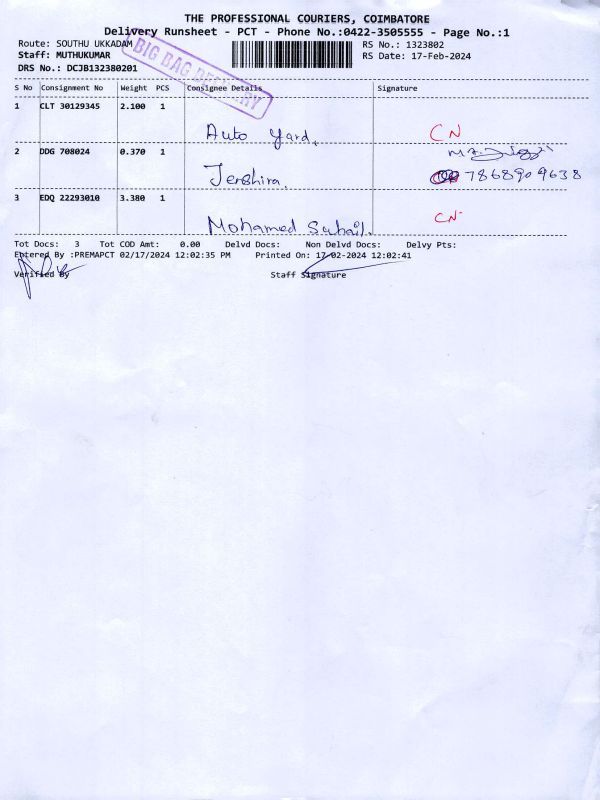 THE PROFESSIONAL COURIERS, COIMBATORE
Delivery Runsheet - PCT - Phone No.:0422-3505555 - Page No.:1
Route: SOUTHU UKKADAM
RS No.: 1323802
Staff: MUTHUKUMAR
RS Date: 17-Feb-2024
DRS No.: DCJB132380201
BIG BAG DELIVERY
S No Consignment No Weight PCS Consignee Details Signature
1 CLT 30129345 2.100 1
Auto Yard. CN
2 DDG 708024 0.370 1
Jenshira. 7868909638
3 EDQ 22293010 3.380 1
CN
Mohamed Suhail.
Tot Docs: 3 Tot COD Amt: 0.00 Delvd Docs: Non Delvd Docs: Delvy Pts:
Entered By :PREMAPCT 02/17/2024 12:02:35 PM Printed On: 17-02-2024 12:02:41
Verified By Staff Signature